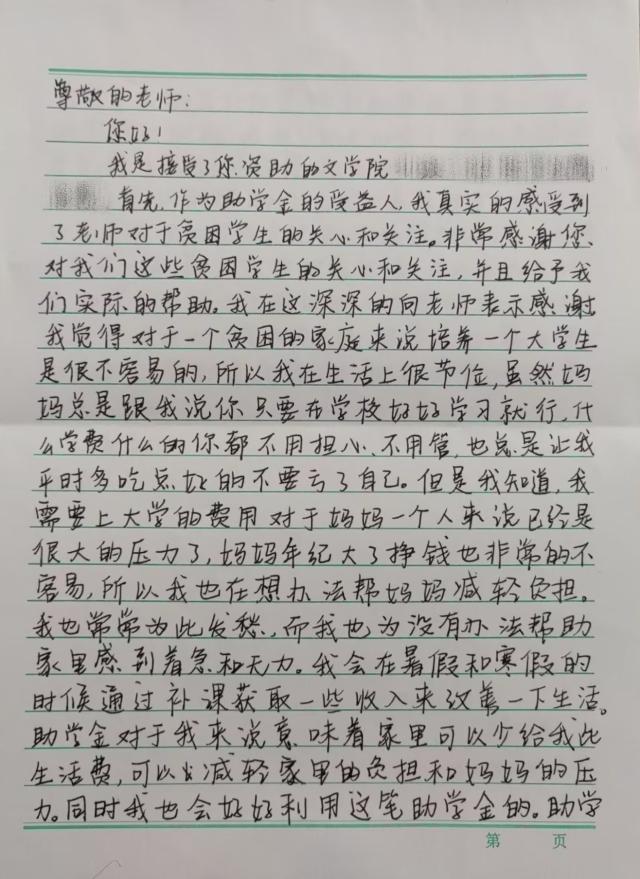 尊敬的老师：
你好！
我是接受了你资助的文学院
首先，作为助学金的受益人，我真实的感受到
了老师对于贫困学生的关心和关注。非常感谢您
对我们这些贫困学生的关心和关注，并且给予我
们实际的帮助。我在这深深的向老师表示感谢
我觉得对于一个贫困的家庭来说培养一个大学生
是很不容易的，所以我在生活上很节俭，虽然妈
妈总是跟我说你只要在学校好好学习就行，什
么学费什么的你都不用担心、不用管，也总是让我
平时多吃点好的不要亏了自己。但是我知道，我
需要上大学的费用对于妈妈一个人来说已经是
很大的压力了，妈妈年纪大了挣钱也非常的不
容易，所以我也在想办法帮妈妈减轻负担。
我也常常为此发愁，而我也为没有办法帮助
家里感到着急和无力。我会在暑假和寒假的
时候通过补课获取一些收入来改善一下生活。
助学金对于我来说意味着家里可以少给我些
生活费，可以减轻家里的负担和妈妈的压
力。同时我也会好好利用这笔助学金的。助学
第 页